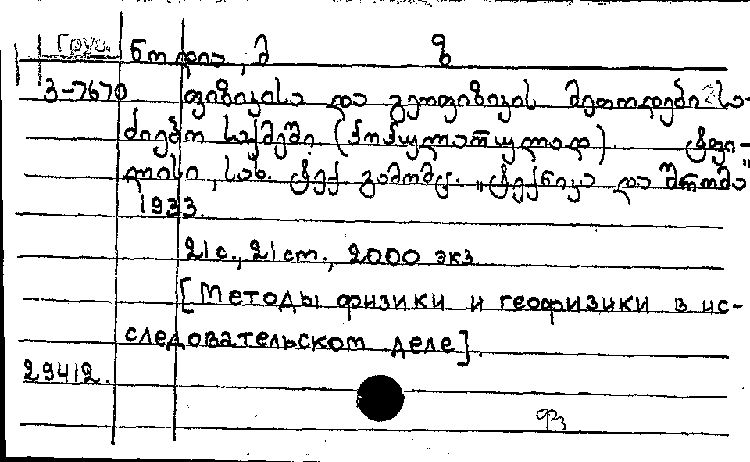 Груз. ნოდია, მ ზ
3-7670 ფიზიკისა და გეოფიზიკის მეთოდები სა-
ძიებო საქმეში (პოპულარულად) ტფი-
ლისი, სახ. ტექ გამომც. „ტექნიკა და შრომა"
1933.
21 с., 21 cm., 2000 экз
[Методы физики и геофизики в ис-
следовательском деле].
29412.